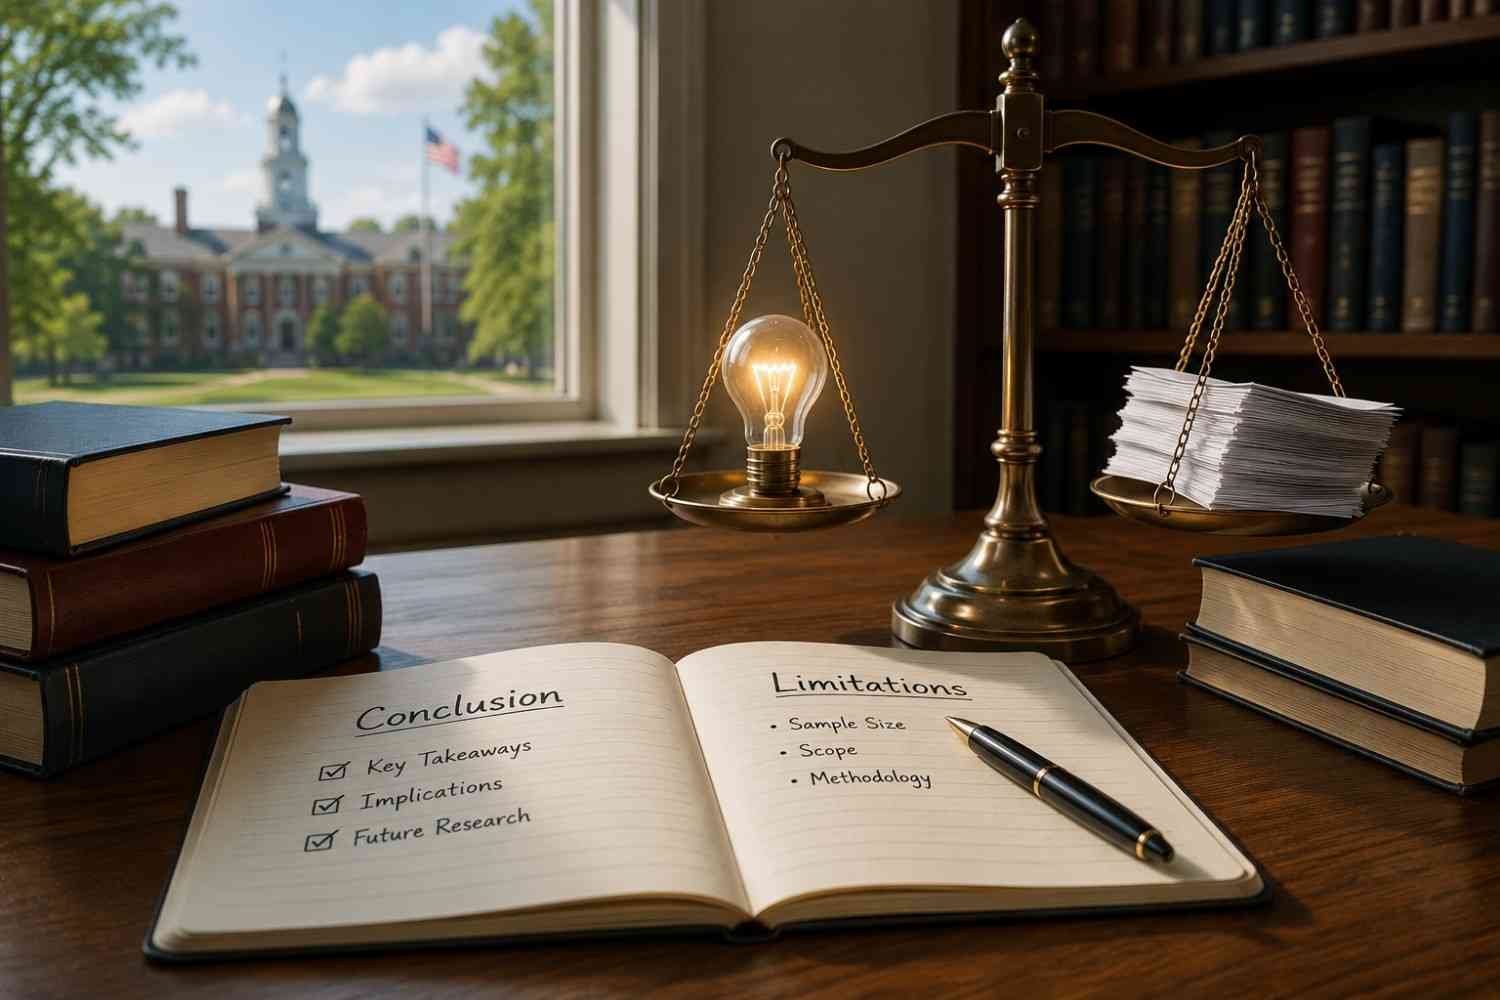 Conclusion
Key Takeaways
Implications
Future Research
Limitations
• Sample Size
• Scope
• Methodology